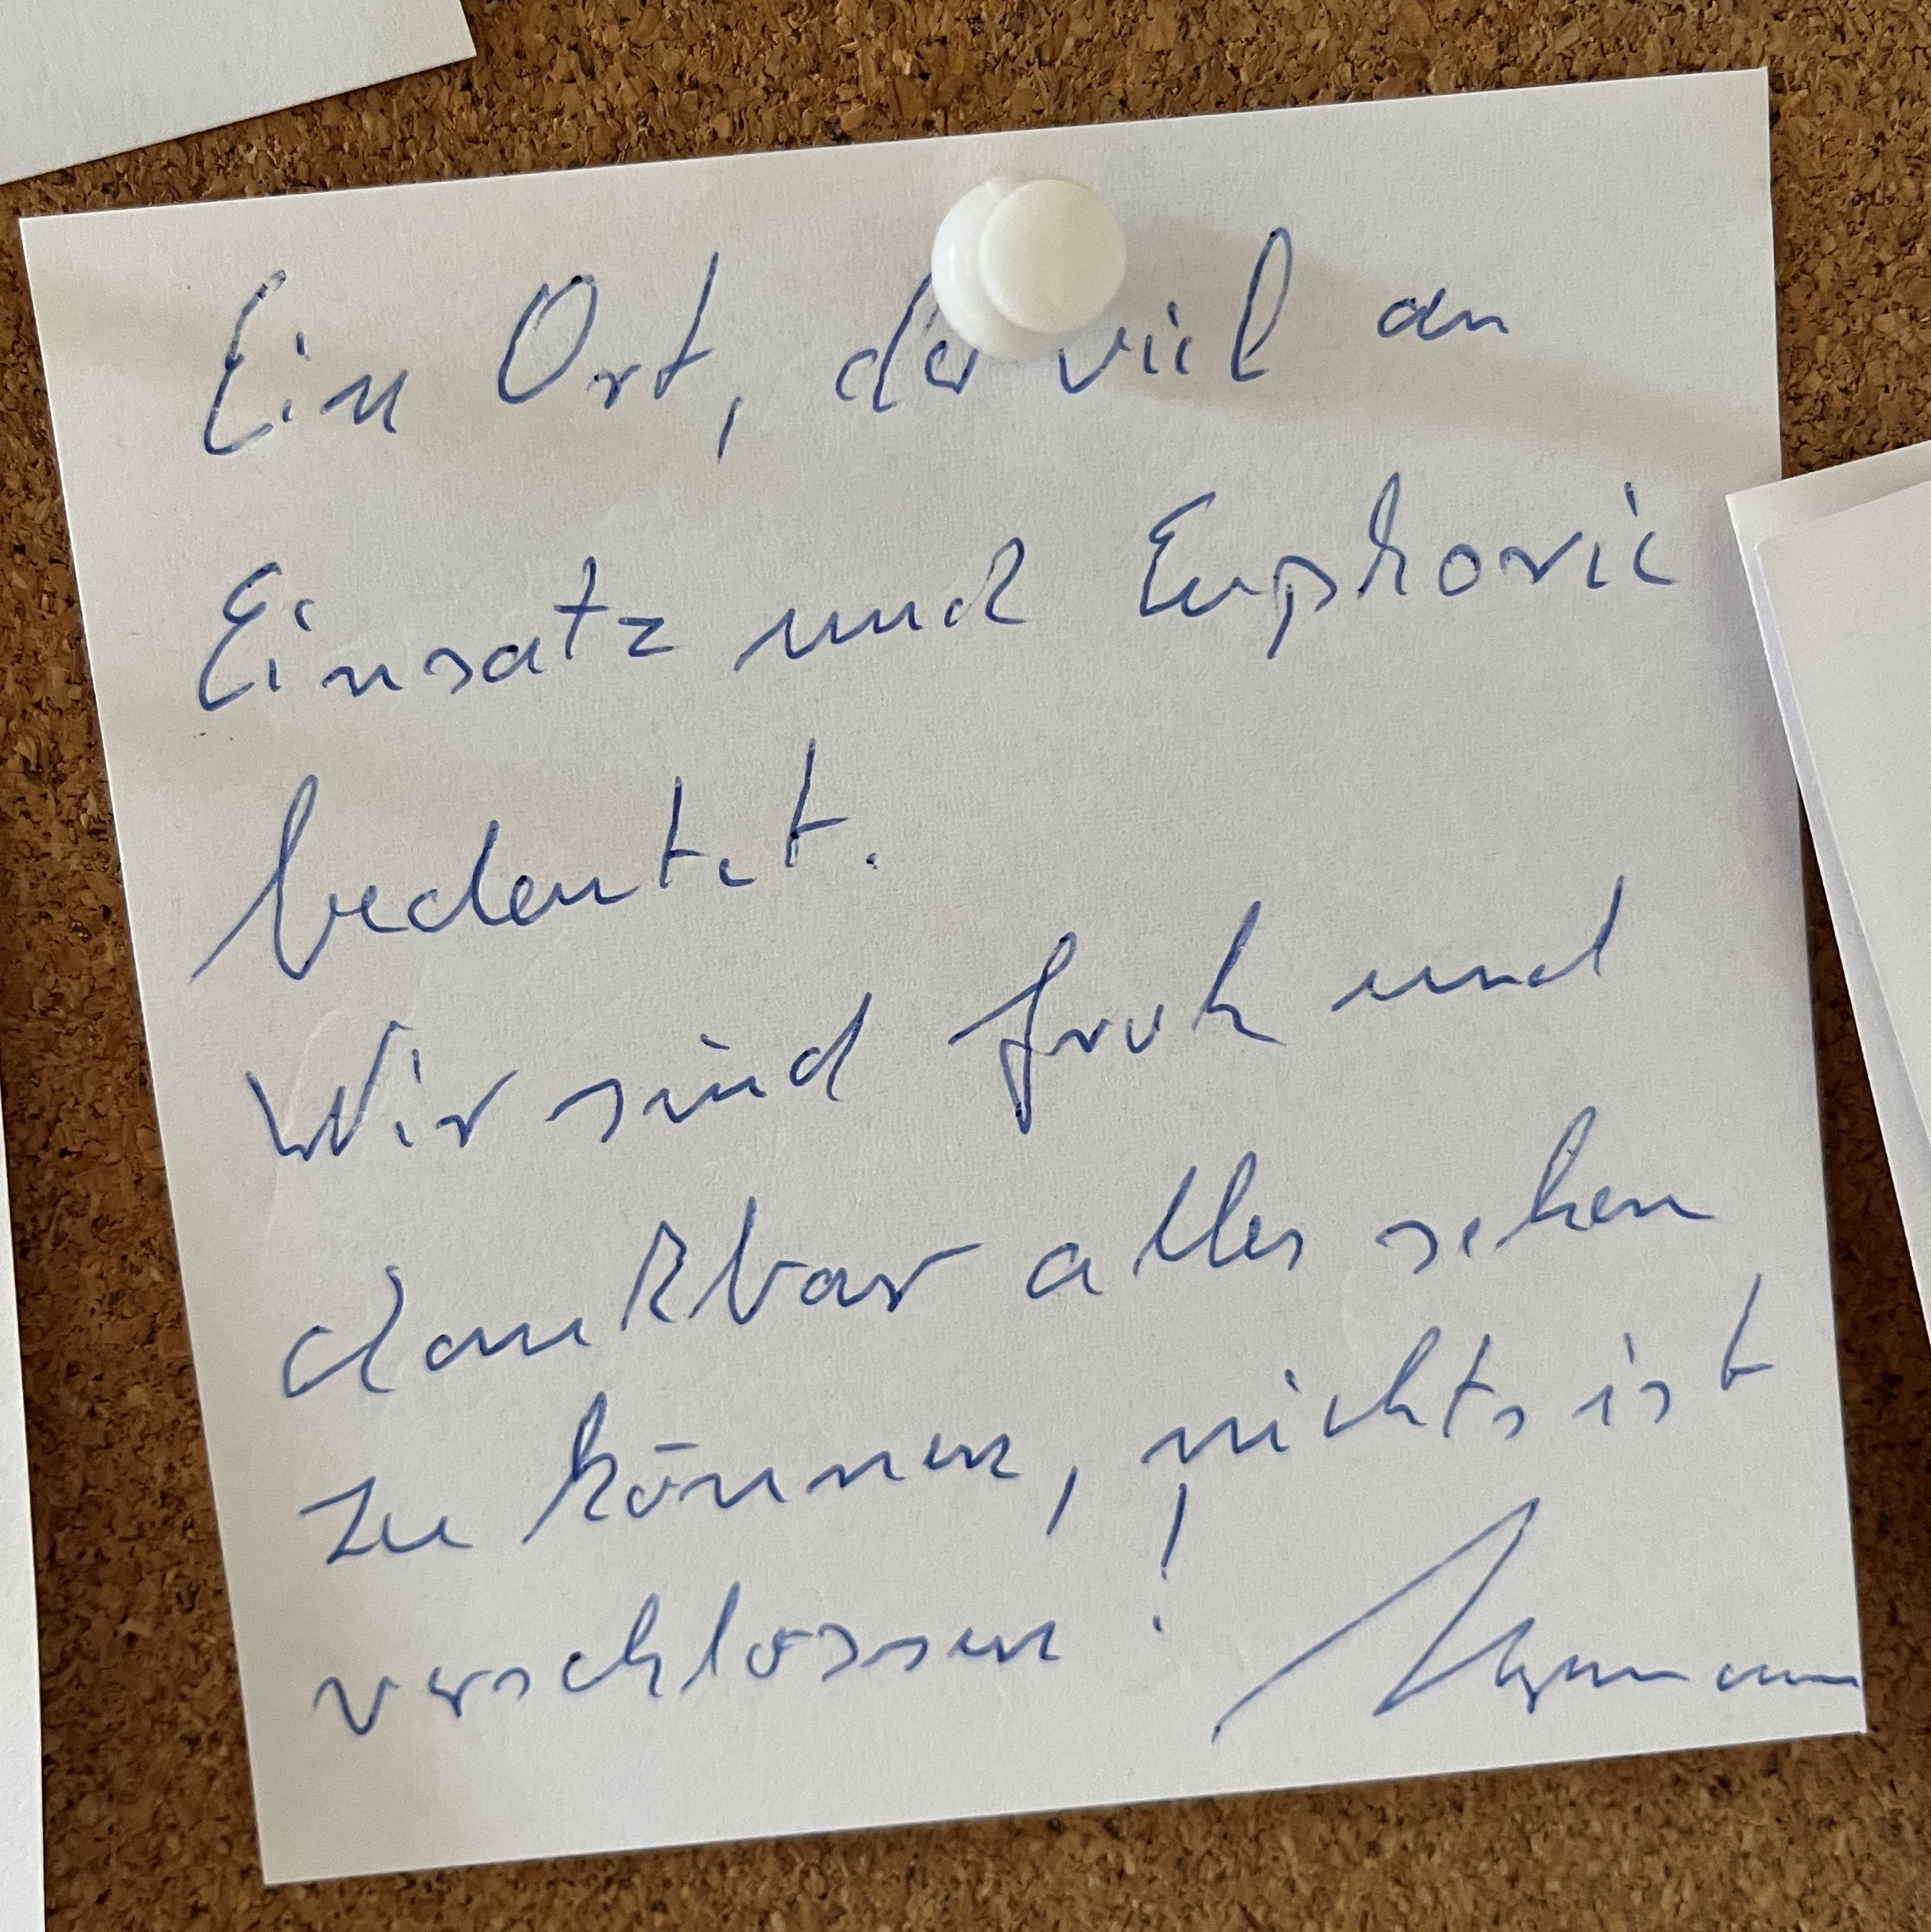 Ein Ort, der viel an
Einsatz und Euphorie
bedeutet.
Wir sind froh und
dankbar alles sehen
zu können, nichts ist
verschlossen!